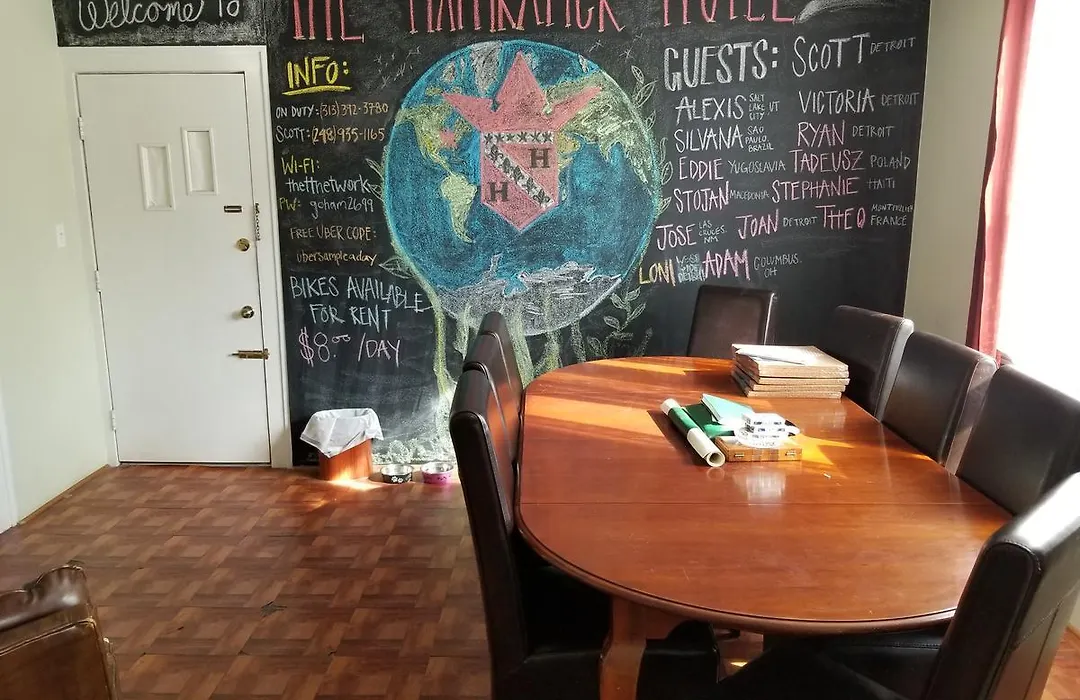 Welcome To
THE HAMTRAMCK HOTEL
INFO:
ON DUTY: (313) 392-3780
SCOTT: (248) 935-1165
WI-FI:
thettnetwork
PW: gcham2699
FREE UBER CODE:
ubersampleaday
BIKES AVAILABLE
FOR RENT
$8.00 /DAY
H
H
GUESTS:
SCOTT DETROIT
ALEXIS SALT LAKE CITY, UT
VICTORIA DETROIT
SILVANA SAO PAULO, BRAZIL
RYAN DETROIT
EDDIE YUGOSLAVIA
TADEUSZ POLAND
STOJAN MACEDONIA
STEPHANIE HAITI
JOSE LAS CRUCES, NM
JOAN DETROIT
THEO MONTPELLIER FRANCE
LONI WEST SIDE
ADAM COLUMBUS, OH